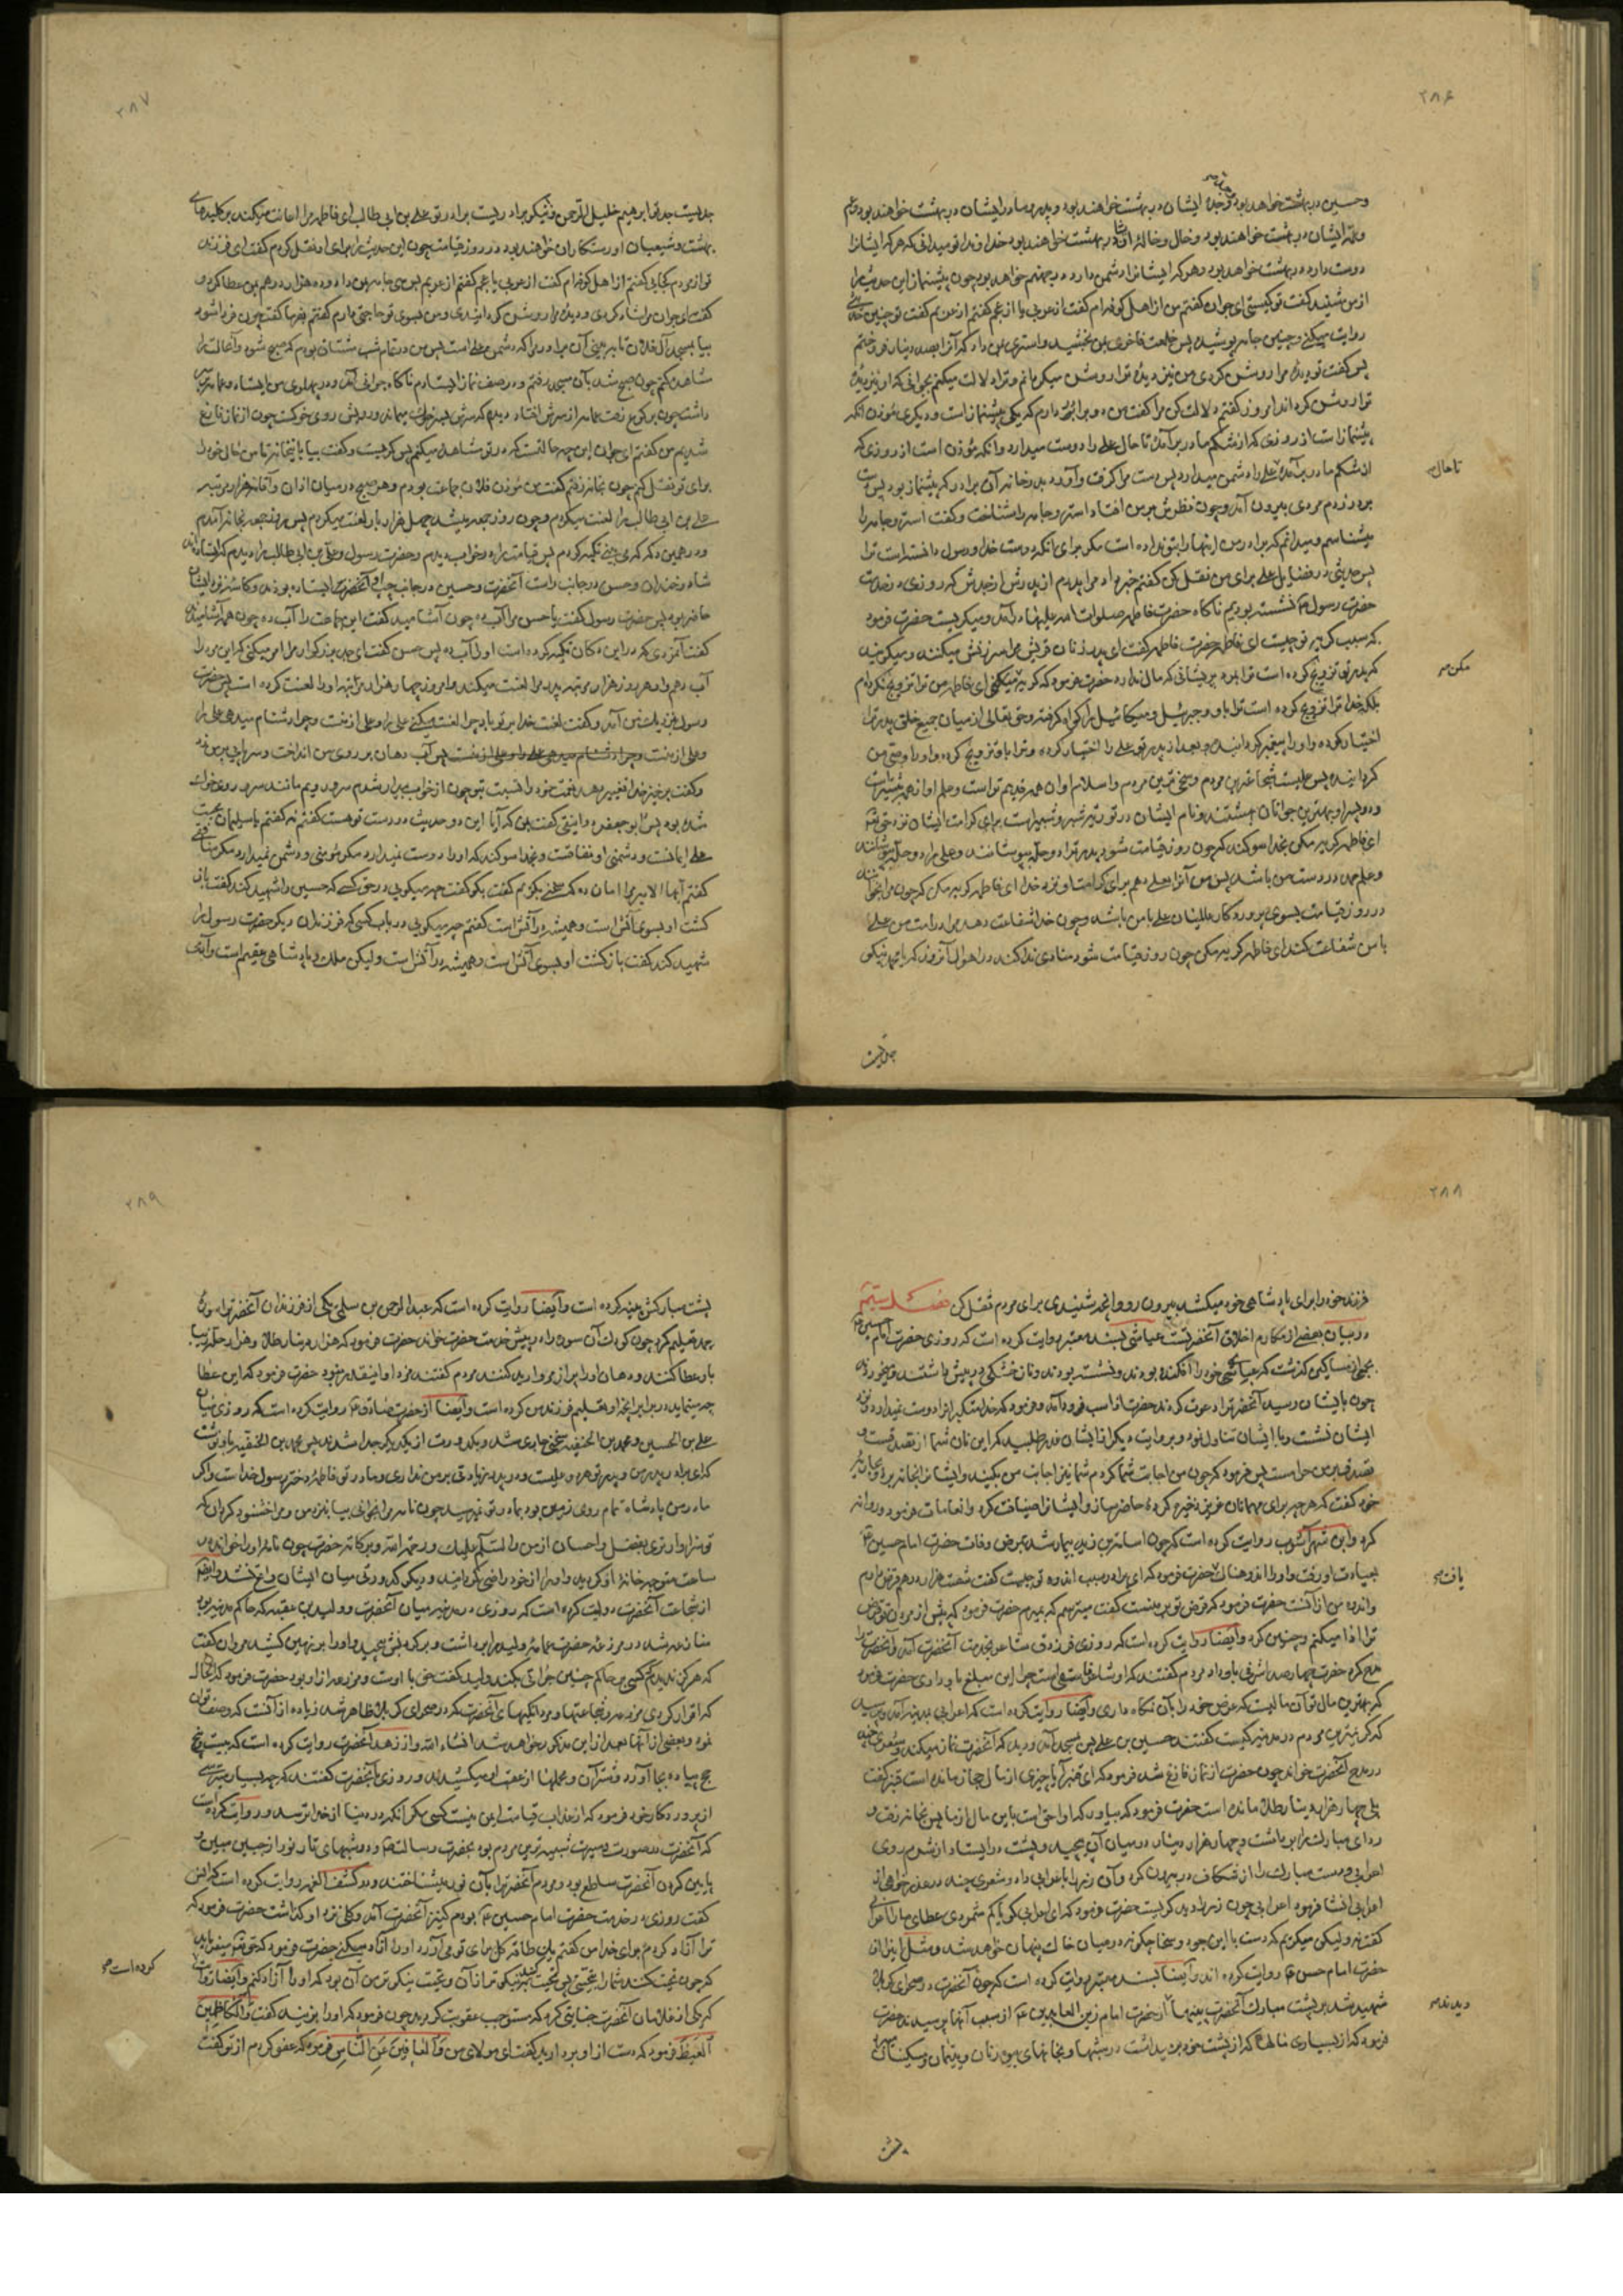 ۲۸۶
وحسین در بهشت خواهند بود وجد ایشان در بهشت خواهند بود و پدر و مادر ایشان در بهشت خواهند بود وعم
وعمه ایشان در بهشت خواهند بود وخال وخاله ایشان در بهشت خواهند بود خداوندا تو میدانی که هر که ایشانرا
دوست دارد در بهشت خواهد بود وهر که ایشانرا دشمن دارد در جهنم خواهد بود چون پیشنماز این حدیث را
از من شنید گفت تو کیستی ای جوان گفتم من از اهل کوفه ام گفت از عربی یا از عجم گفتم از عربم گفت تو چنین حدیثی
روایت میکنی و چنین جامه پوشیده پس خلعت فاخری بمن بخشید واستری بمن داد که آنرا بصد دینار فروختم
پس گفت تو دیدهٔ مرا روشن کردی من نیز دیدهٔ ترا روشن میگردانم وترا دلالت میکنم بجوانی که او نیز دیدهٔ
ترا روشن گرداند امروز گفتم دلالت کن مرا گفت من دو برادر دارم که یکی پیشنماز است و دیگری مؤذن آنکه
پیشنماز است از روزی که از شکم مادر برآمده تا حال علی را دوست میدارد وآنکه مؤذن است از روزی که
از شکم مادر برآمده علی را دشمن میدارد پس دست مرا گرفت وآورد بدر خانه آن برادر که پیشنماز بود پس دست
تاحال
بر در زدم مردی بیرون آمد وچون نظرش بر من افتاد استر وجامه را شناخت وگفت استر وجامه را
میشناسم ومیدانم که برادر من اینها را بتو نداده است مگر برای آنکه دوست خدا ورسول دانسته است ترا
پس حدیثی در فضایل علی برای من نقل کن گفتم خبر داد مرا پدرم از پدرش از جدش که روزی در خدمت
حضرت رسول نشسته بودیم ناگاه حضرت فاطمه صلوات الله علیها درآمد ومیگریست حضرت فرمود
که سبب گریه تو چیست ای فاطمه حضرت فاطمه گفت ای پدر زنان قریش مرا سرزنش میکنند ومیگویند
که پدر تو تزویج کرده است ترا بمرد پریشانی که مال ندارد حضرت فرمود که گریه مکن ای فاطمه من ترا تزویج نکرده ام
مکن
بلکه خدا ترا تزویج کرده است ترا باو وجبرئیل ومیکائیل را گواه گرفته وحق تعالی از میان جمیع خلق پدر ترا
اختیار کرده واو را پیغمبر گردانیده وبعد از پدر تو علی را اختیار کرده وترا باو تزویج کرده واو را وصی من
گردانیده پس علی است شجاعترین مردم وسخی ترین مردم واسلام او از همه قدیم تر است وعلم او از همه بیشتر است
ودو پسر او بهترین جوانان بهشتند ونام ایشان در تورية شبر وشبیر است برای کرامت ایشان نزد حق تعالی
ای فاطمه گریه مکن بخدا سوگند که چون روز قیامت شود پدر ترا دو حله بپوشانند وعلی را دو حله بپوشانند
وعلم حمد در دست من باشد پس من آنرا بعلی دهم برای کرامت او نزد خدا ای فاطمه گریه مکن که چون مرا بخوانند
در روز قیامت بسوی پروردگار عالمیان علی با من باشد وچون خدا شفاعت دهد مرا در امت من علی
با من شفاعت کند ای فاطمه گریه مکن چون روز قیامت شود منادی ندا کند در اهوال آنروز که یا محمد نیکو
جدیست
۲۸۷
جدیست جد تو ابرهیم خلیل الرحمن ونیکو برادریست برادر تو علی بن ابی طالب ای فاطمه علی مرا اعانت میکند بر کلیدهای
بهشت وشیعیان او رستگاران خواهند بود در روز قیامت چون این حدیث را برای او نقل کردم گفت ای فرزند
تو از مردم کجائی گفتم از اهل کوفه ام گفت از عربی یا عجم گفتم از عربم پس سی جامه بمن داد وده هزار درهم بمن عطا کرد و
گفت ای جوان مرا شاد کردی ودیدهٔ مرا روشن گردانیدی ومن بسوی تو حاجتی دارم گفتم بفرما گفت چون فردا شود
بیا بمسجد آل فلان تا ببینی آن برادر مرا که دشمن علی است پس من در تمام شب مشتاق بودم که صبح شود وآنحالت را
مشاهده کنم چون صبح شد بآن مسجد رفتم ودر صف نماز ایستادم ناگاه جوانی آمد ودر پهلوی من ایستاد وعمامه بر سر
داشت چون برکوع رفت عمامه از سرش افتاد دیدم که سرش بسر خوک میماند ورویش روی خوک است چون از نماز فارغ
شدیم من گفتم ای جوان این چه حالتست که در تو مشاهده میکنم پس گریست وگفت بیا باین خانه تا من حال خود را
برای تو نقل کنم چون بخانه رفتم گفت من مؤذن فلان جماعت بودم وهر صبح در میان اذان واقامه هزار مرتبه
علی بن ابی طالب را لعنت میکردم وچون روز جمعه میشد چهار هزار بار لعنت میکردم پس روز جمعه بخانه آمدم
ودر همین دکه که می بینی تکیه کردم پس قیامت را در خواب دیدم وحضرت رسول وعلی بن ابی طالب را دیدم که ایستاده اند
شاد وخندان وحسن در جانب راست آنحضرت وحسین در جانب چپ آنحضرت ایستاده بودند وکاسه نزد ایشان
حاضر بود پس حضرت رسول گفت یا حسن مرا آب ده چون آشامید گفت این جماعت را آب ده چون همه آشامیدند
گفت آنمردی که در این دکان تکیه کرده است او را آب ده پس حسن گفت ای جد بزرگوار مرا امر میکنی که این مرد را
آب دهم واو هر روز هزار مرتبه پدر مرا لعنت میکند وامروز چهار هزار مرتبه او را لعنت کرده است پس حضرت
رسول بنزدیک من آمد وگفت لعنت خدا بر تو باد چرا لعنت میکنی علی را وعلی از منست وچرا دشنام میدهی علی را
وعلی از منست وچرا دشنام میدهی علی را وعلی از منست پس آب دهان بر روی من انداخت وسر پائی بمن زد
وگفت برخیز خدا تغییر دهد نعمت خود را نسبت بتو چون از خواب بیدار شدم سر ورویم مانند سر وروی خوک
شده بود پس ابو جعفر دوانیقی گفت بمن که آیا این دو حدیث در دست تو هست گفتم نه گفت یا سلیمان محبت
علی ایمانست ودشمنی او نفاقست وبخدا سوگند که او را دوست نمیدارد مگر مؤمنی ودشمن نمیدارد مگر منافقی
گفتم ایها الامیر مرا امان ده که سخنی بگویم گفت بگو گفتم چه میگویی در حق کسی که حسین را شهید کند گفت باز
گشت او بسوی آتش است وهمیشه در آتش است گفتم چه میگویی در باب کسی که فرزندان دیگر حضرت رسول را
شهید کند گفت بازگشت او بسوی آتش است وهمیشه در آتش است ولیکن ملک وپادشاهی عقیم است وآدمی
۲۸۸
فرزند خود را برای پادشاهی خود میکشد بیرون رو وآنچه شنیدی برای مردم نقل کن فصل سیّم
در بیان بعضی از مکارم اخلاق آنحضرتست عیاشی بسند معتبر روایت کرده است که روزی حضرت امام حسین
بجمعی از مساکین گذشت که عباهای خود را افکنده بودند ونشسته بودند ونان خشکی در پیش داشتند ومیخوردند
چون بایشان رسید آنحضرت را دعوت کردند حضرت از اسب فرود آمد وفرمود که خدا متکبرانرا دوست نمیدارد ونزد
ایشان نشست وبا ایشان تناول نمود
خود گفت که هر چه برای مهمانان عزیز ذخیره کردهٔ حاضر ساز وایشانرا ضیافت کرد وانعامات فرمود وروانه
کرد وابن شهرآشوب روایت کرده است که چون اسامة بن زید بیمار شد بمرض وفات حضرت امام حسین
بعیادت او رفت واو را اندوهناک یافت حضرت فرمود که ای برادر سبب اندوه تو چیست گفت شصت هزار درهم قرض دارم
یافت
واندوه من از آنست حضرت فرمود که قرض تو بر منست گفت میترسم که بمیرم حضرت فرمود که پیش از مردن تو قرض
ترا ادا میکنم وچنین کرد وایضا روایت کرده است که روزی فرزدق شاعر بخدمت آنحضرت آمد وآنحضرت را
مدح کرد حضرت چهارصد اشرفی باو داد مردم گفتند که او شاعر فاسقی است چرا این مبلغ باو دادی حضرت فرمود
که بهترین مال تو آن مالیست که عرض خود را بآن نگاه داری وایضا روایت کرده است که اعرابی بمدینه آمد وپرسید
که کریمترین مردم در مدینه کیست گفتند حسین بن علی پس بمسجد آمد ودید که آنحضرت نماز میکند وشعری چند
در مدح آنحضرت خواند چون حضرت از نماز فارغ شد فرمود که ای قنبر آیا چیزی از مال حجاز مانده است قنبر گفت
بلی چهار هزار دینار طلا مانده است حضرت فرمود که بیاور که او احق است باین مال از ما پس بخانه رفت و
ردای مبارک را برداشت وچهار هزار دینار در میان آن پیچید ودر پشت در ایستاد از شرم روی
اعرابی ودست مبارک را از شکاف در بیرون کرد وآن زر را باعرابی داد وشعری چند در عذرخواهی از
اعرابی انشا فرمود اعرابی چون زر را دید گریست حضرت فرمود که ای اعرابی گویا کم شمردی عطای ما را اعرابی
گفت نه ولیکن میگریم که دست با این جود وسخا چگونه در میان خاک پنهان خواهد شد ومثل اینرا از
حضرت امام حسن روایت کرده اند وایضا بسند معتبر روایت کرده است که چون آنحضرت در صحرای کربلا
شهید شد بر پشت مبارک آنحضرت پینها دیدند از حضرت امام زین العابدین از سبب آنها پرسیدند حضرت
دیدند
فرمود که از بسیاری طعامها که از پشت خود برمیداشت در شبها وبخانهای بیوه زنان ویتیمان ومسکینان میبرد
پشت
۲۸۹
پشت مبارکش پینه کرده است وایضا روایت کرده است که عبدالرحمن بن سلمی یکی از فرزندان آنحضرت را سورهٔ
حمد تعلیم کرد چون کودک آن سوره را در پیش خدمت حضرت خواند حضرت فرمود که هزار دینار طلا وهزار حله
باو عطا کنند ودهان او را پر از مروارید کنند مردم گفتند مزد او اینقدر نبود حضرت فرمود که این عطا
چه مینماید در برابر آنچه او تعلیم فرزند من کرده است وایضا از حضرت صادق روایت کرده است که روزی میان
حسین بن علی ومحمد بن الحنفیه سخنی جاری شد وبکدورت از یکدیگر جدا شدند پس محمد بن الحنفیه باو نوشت
که ای برادر پدر من وپدر تو هر دو علیست ودر پدر زیادتی بر من نداری ومادر تو فاطمه دختر رسول خداست واگر
مادر من پادشاه تمام روی زمین بود بمادر تو نمیرسید چون نامه مرا بخوانی بیا بنزد من ومرا خشنود گردان که
تو سزاوارتری بفضل واحسان از من والسلم علیک ورحمة الله وبرکاته حضرت چون نامه او را خواند در
ساعت متوجه خانهٔ او گردید واو را از خود راضی گردانید ودیگر کدورتی میان ایشان واقع نشد وایضا
از شجاعت آنحضرت روایت کرده است که روزی در مدینه میان آنحضرت وولید بن عقبه که حاکم مدینه بود
منازعه شد در مزرعه حضرت عمامهٔ ولید را برداشت وبر گردنش پیچید واو را بر زمین کشید مروان گفت
که هرگز ندیدم کسی بر حاکم چنین جرأتی بکند ولید گفت حق با اوست ومزرعه از او بود حضرت فرمود که الحال
که اقرار کردی مزرعه را
نمود وبعضی از آنها بعد از این مذکور خواهد شد انشاء الله واز زهد آنحضرت روایت کرده است که بیست وپنج
حج پیاده بجا آورد وشتران ومحملها از عقب او میکشیدند وروزی بآنحضرت گفتند که چه بسیار میترسی
از پروردگار خود فرمود که از عذاب قیامت ایمن نیست کسی مگر آنکه در دنیا از خدا ترسد وروایت کرده است
که آنحضرت در صورت وسیرت شبیه ترین مردم بود بحضرت رسالت ودر شبهای تار نور از جبین مبین و
پایین گردن آنحضرت ساطع بود ومردم آنحضرت را بآن نور میشناختند ودر کشف الغمه روایت کرده است که انس
گفت روزی در خدمت حضرت امام حسین بودم کنیز آنحضرت آمد وگلی نزد او گذاشت حضرت فرمود که
ترا آزاد کردم برای خدا من گفتم یک طاقه گل برای تو می آورد او را آزاد میکنی حضرت فرمود که حق تعالی میفرماید
که چون تحیت کنند شما را بتحیتی پس تحیت کنید نیکوتر از آن وتحیت نیکوتر من آن بود که او را آزاد کنم وایضا روایت
کرده است
که یکی از غلامان آنحضرت جنایتی کرد که مستوجب عقوبت گردید چون فرمود که او را بزنید گفت وَالْكَاظِمِينَ
الْغَيْظَ فرمود که دست از او بردارید گفت ای مولای من وَالْعَافِينَ عَنِ النَّاسِ فرمود که عفو کردم از تو گفت